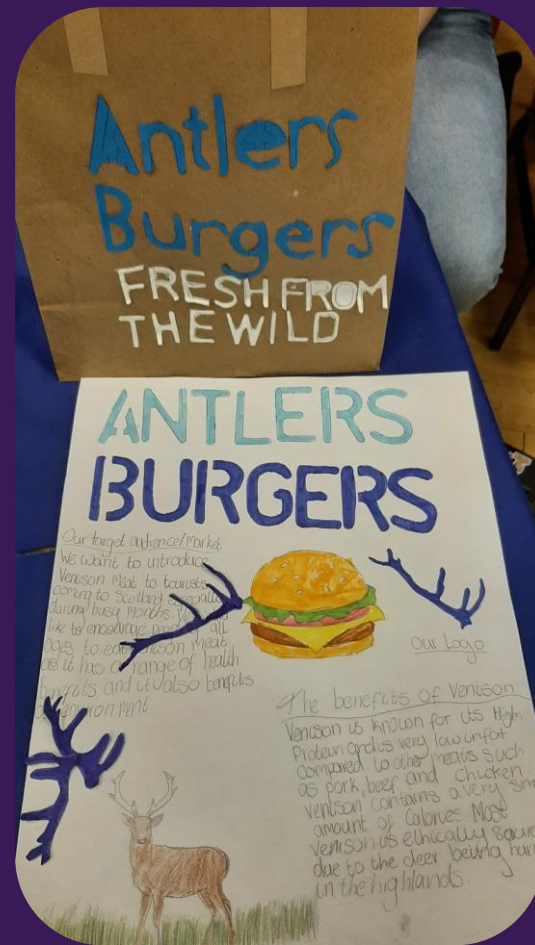 Antlers
Burgers
FRESH FROM
THE WILD
ANTLERS
BURGERS
Our target audience/market
We want to introduce
Venison meat to tourists
coming to Scotland especially
during busy months.
like to encourage all
ages to eat venison meat
as it has a range of health
benefits and it also benefits
environment.
Our Logo
The benefits of Venison
Venison is known for its High
Protein and is very low in fat
compared to other meats such
as pork, beef and chicken
Venison contains a very
amount of calories. Most
venison is ethically
due to the deer being
in the highlands.